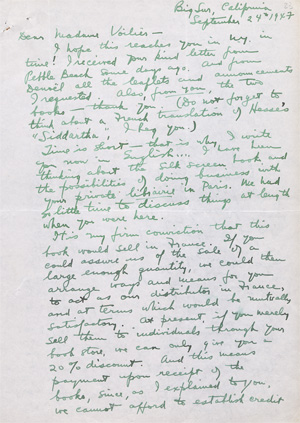 Big Sur, California
September 24th 1947
Dear Madame Voilier -
I hope this reaches you in N.Y. in
time! I received your kind letter from
Pebble Beach some days ago. And from
Denoël all the leaflets and announcements
I requested. Also, from you, the two
books - thank you! (Do not forget to
think about a French translation of Hesse's
"Siddartha," I beg you.)
Time is short - that is why I write
you now in English....
thinking about the silk screen book and
the possibilities of doing business with
your private librairie in Paris. We had
so little time to discuss things at length
when you were here.
It is my firm conviction that this
book would sell in France. If you
could assure us of the sale of a
large enough quantity, we could then
arrange ways and means for you
to act as our distributor in France,
and at terms which would be mutually
satisfactory. At present, if you merely
sell them to individuals through your
book store, we can only give you a
20% discount. And this means
payment upon receipt of the
books, since, as I explained to you,
we cannot afford to establish credit